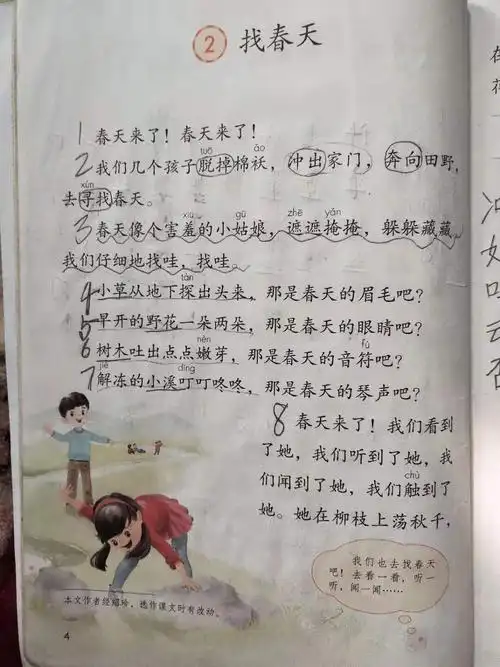 2 找春天
1 春天来了！春天来了！
tuō ǎo
2 我们几个孩子脱掉棉袄，冲出家门，奔向田野，
xún
去寻找春天。
xiū gū zhē yǎn
3 春天像个害羞的小姑娘，遮遮掩掩，躲躲藏藏。
我们仔细地找哇，找哇。
tàn
4 小草从地下探出头来，那是春天的眉毛吧？
5 早开的野花一朵两朵，那是春天的眼睛吧？
nèn fú
6 树木吐出点点嫩芽，那是春天的音符吧？
jiě dīng
7 解冻的小溪叮叮咚咚，那是春天的琴声吧？
8 春天来了！我们看到
了她，我们听到了她，我
chù
们闻到了她，我们触到了
她。她在柳枝上荡秋千，
我们也去找春天
吧！去看一看，听一
听，闻一闻……
本文作者经绍珍，选作课文时有改动。
4